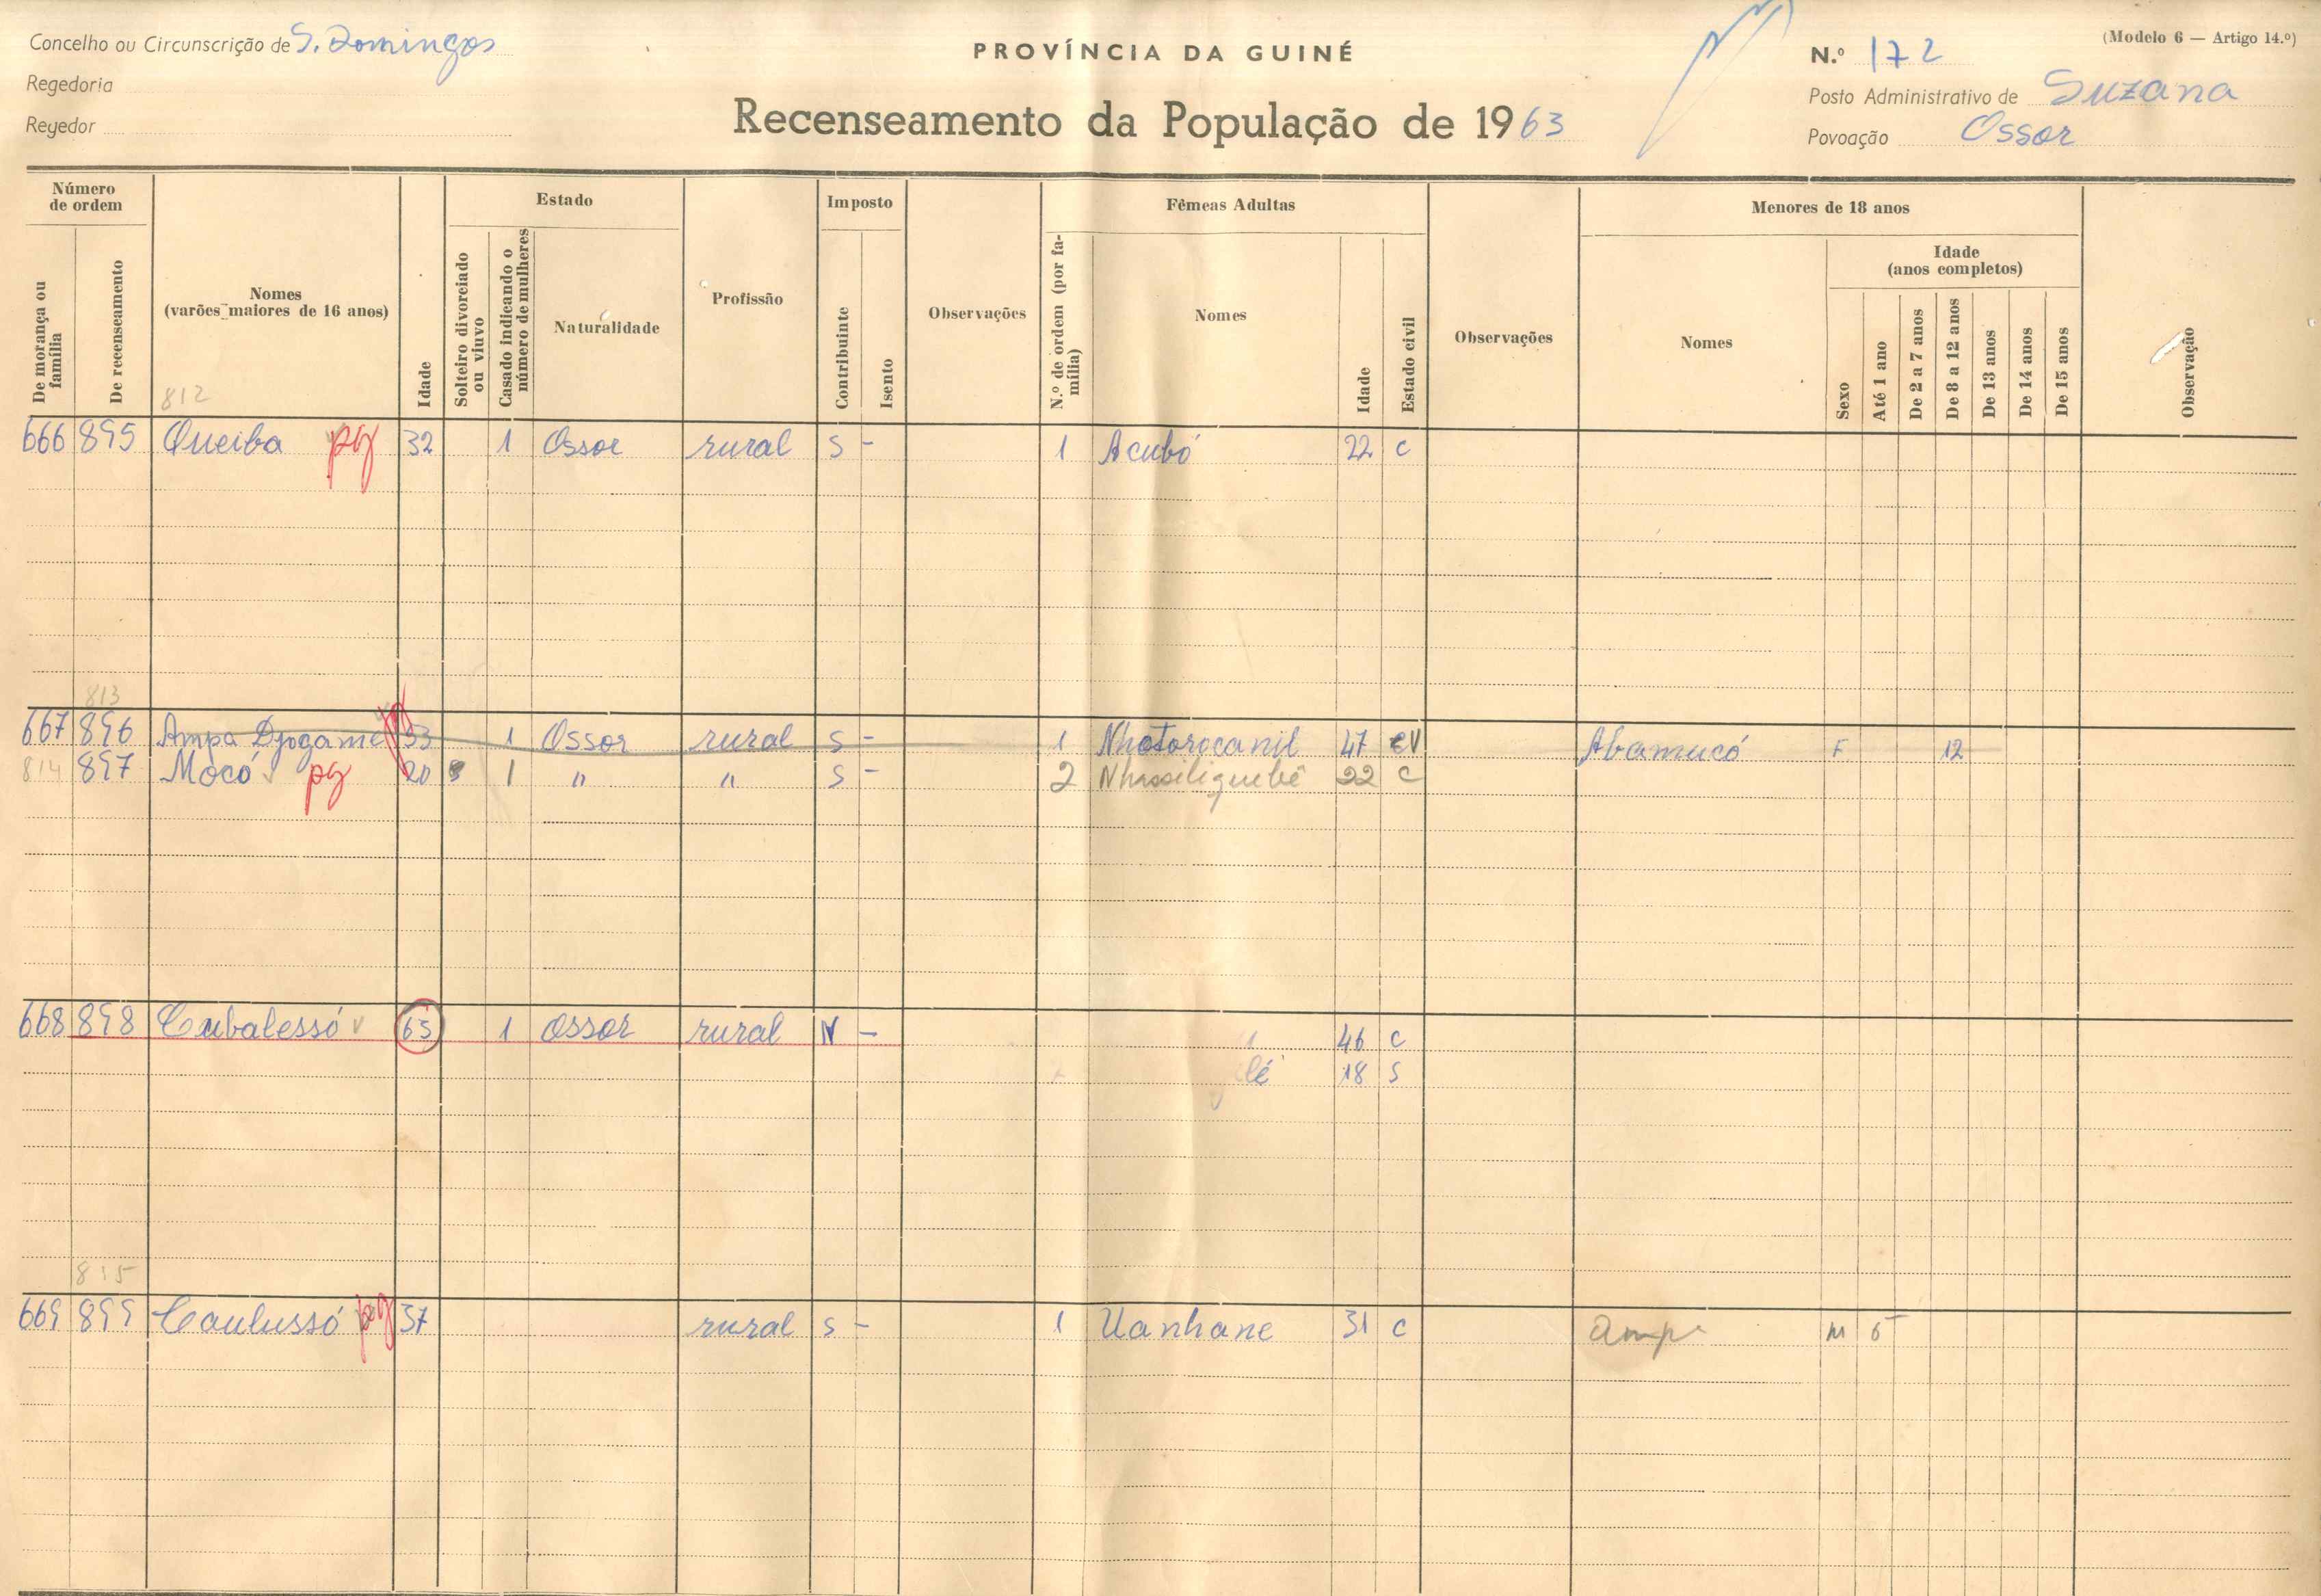 Concelho ou Circunscrição de S. Domingos
Regedoria
Regedor
PROVÍNCIA DA GUINÉ
Recenseamento da População de 1963
(Modelo 6 — Artigo 14.º)
N.º 172
Posto Administrativo de Suzana
Povoação Ossor
Número de ordem
De morança ou família
De recenseamento
Nomes
(varões maiores de 16 anos)
812
Idade
Estado
Solteiro divorciado ou viuvo
Casado indicando o número de mulheres
Naturalidade
Profissão
Imposto
Contribuinte
Isento
Observações
Fêmeas Adultas
N.º de ordem (por família)
Nomes
Idade
Estado civil
Observações
Menores de 18 anos
Nomes
Idade
(anos completos)
Sexo
Até 1 ano
De 2 a 7 anos
De 8 a 12 anos
De 13 anos
De 14 anos
De 15 anos
Observação
666 895 Queiba pg 32 1 Ossor rural S - 1 Acubó 22 C
813
667 896 Ampa Djogame 53 1 Ossor rural S - 1 Nhotorocanil 47 V Abamucó F 12
814 897 Mocó pg 20 S 1 " " S - 2 Nhassiliguebê 22 C
668 898 Cubalessó V 65 1 Ossor rural N - 46 C
lé 18 S
815
669 899 Caulussó pg 37 rural S - 1 Uanhane 31 C Ampa M 5